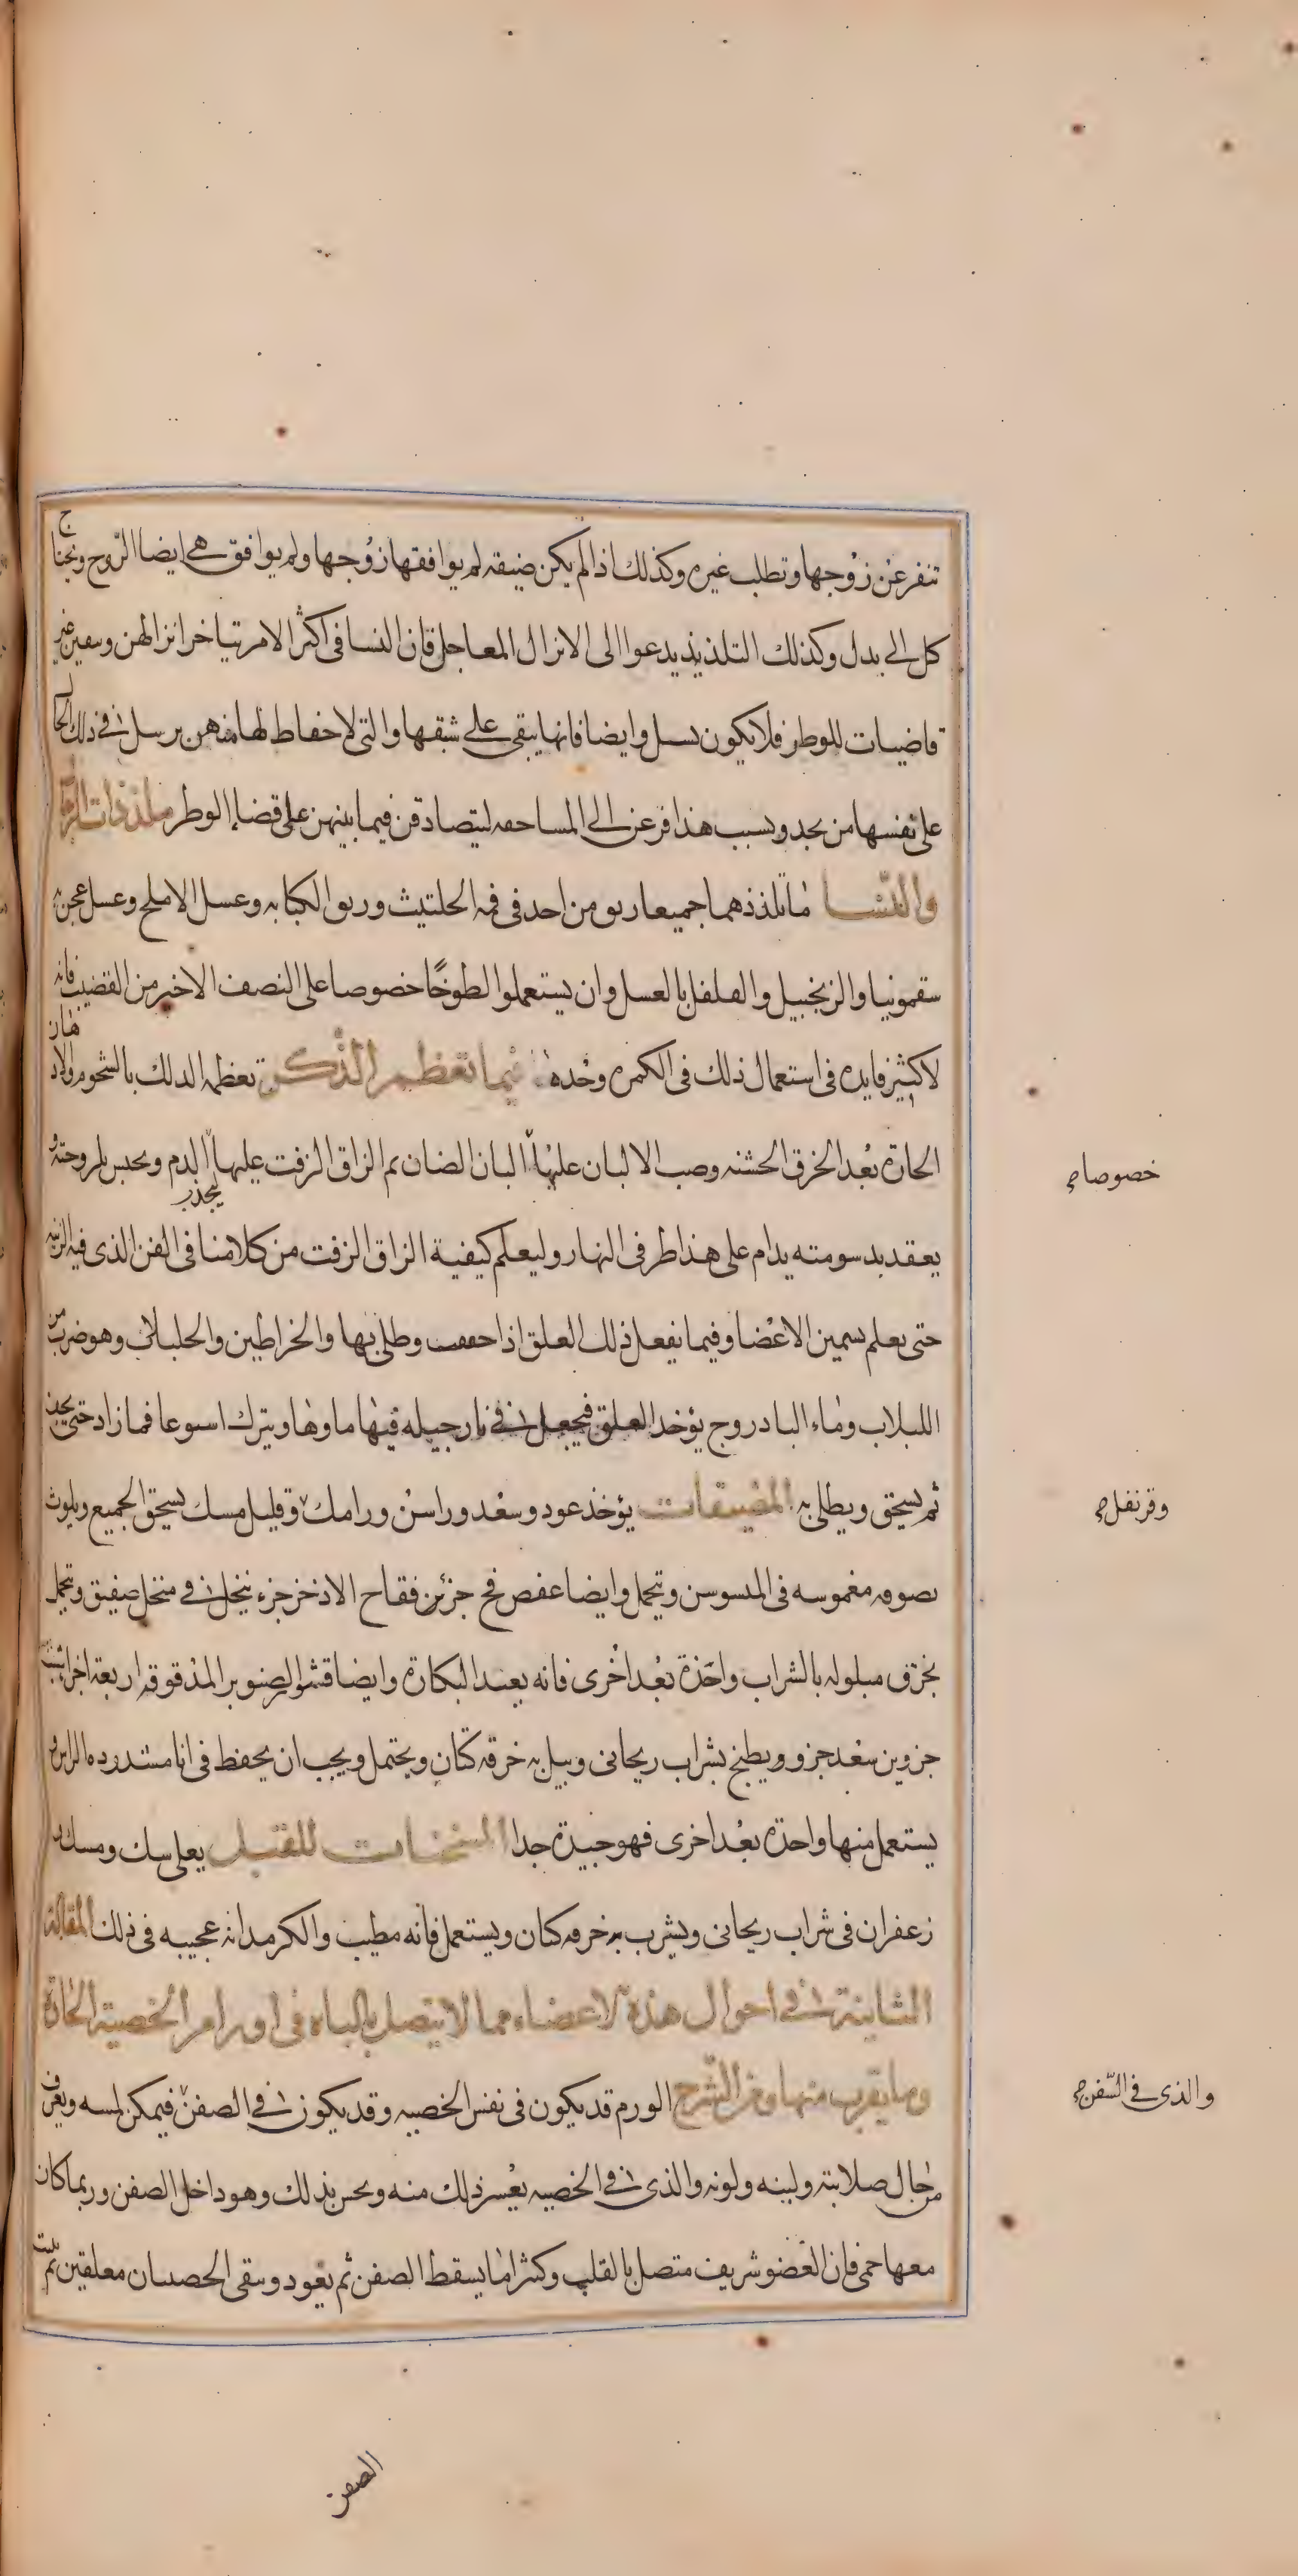 تنفر عن زوجها وتطلب غيره وكذلك اذا لم يكن ضيقه لم يوافقها زوجها ولم يوافق هي ايضا الزوج ويحتاج
كل الى بدل وكذلك التلذيذ يدعوا الى الانزال المعاجل فان النسا فى اكثر الامر يتاخر انزالهن وسقين غير
قاضيات للوطر فلا يكون نسل وايضا فانها يبقى على شبقها والتى لا حفاظ لها منهن يرسل فى ذلك الحال
على نفسها من يجد وبسبب هذا فرعن الى المساحقه ليتصادقن فيما بينهن على قضاء الوطر ملذذات الرجال
والنسا ما تلذذهما جميعا ريق من اخذ فى فمه الحلتيث وريق الكبابه وعسل الاملج وعسل عجن به
سقمونيا والزنجبيل والفلفل بالعسل وان يستعملوا لطوخًا خصوصا على النصف الاخير من القضيب فانه
لا كثير فايده فى استعمال ذلك فى الكمره وحده فيما تعظم الذكر تعظمه الدلك بالشحوم والادهان
الحارة بعد الخرق الخشنه وصب الالبان عليها البان الضان ثم الزاق الزفت عليها ليجذب الدم ويحبس بلزوجته و
خصوصا
يعقد بدسومته يدام على هذا طرفى النهار وليعلم كيفية الزاق الزفت من كلامنا فى الفن الذى فيه الزينه
حتى يعلم تسمين الاعضا وفيما يفعل ذلك العلق اذا جففت وطلى بها والخراطين والحلبلاب وهو ضرب من
اللبلاب وماء البادروج يؤخذ العلق فيجعل فى نارجيله فيها ماوها ويترك اسبوعا فما زاد حتى يجف
ثم يسحق ويطلى به المضيقات يؤخذ عود وسعد وراسن ورامك وقليل مسك يسحق الجميع ويلوث
وقرنفل
بصوفه مغموسه فى الميسوسن ويتحمل وايضا عفص فج جزئن فقاح الاذخر جزء ينخل فى منخل صفيق ويتحمل
بخرق مبلوله بالشراب واحدة بعد اخرى فانه يعيد البكارة وايضا قشور الصنوبر المدقوقه اربعة اجزا شب
جزوين سعد جزو ويطبخ بشراب ريحانى ويبل به خرقه كتان ويحتمل ويجب ان يحفظ فى انا مشدد الراس و
يستعمل منها واحدة بعد اخرى فهو جيدة جدا المسخنات للقبل يغلى سك ومسك و
زعفران فى شراب ريحانى ويشرب به خرقه كتان ويستعمل فانه مطيب والكرمدانه عجيبه فى ذلك المقالة
الثانية فى احوال هذه الاعضاء مما لا يتصل بالباه فى اورام الخصية الحارة
وما يقرب منها وعن الشرج الورم قد يكون فى نفس الخصيه وقد يكون فى الصفن فيمكن لمسه ويعرف
والذى فى الصّفن
من حال صلابته ولينه ولونه والذى فى الخصيه يعسر ذلك منه ويحس بذلك وهو داخل الصفن وربما كان
معها حمى فان العضو شريف متصل بالقلب وكثيرا ما يسقط الصفن ثم يعود وتبقى الخصيتان معلقين ثم ينبت
الصفن